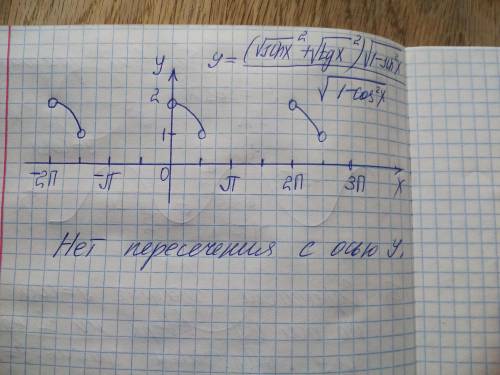 y = ((√sinx)² + (√tgx)²)√1-sin²x
√1-cos²x
y
2
1
-2π -π 0 π 2π 3π x
Нет пересечения с осью y.